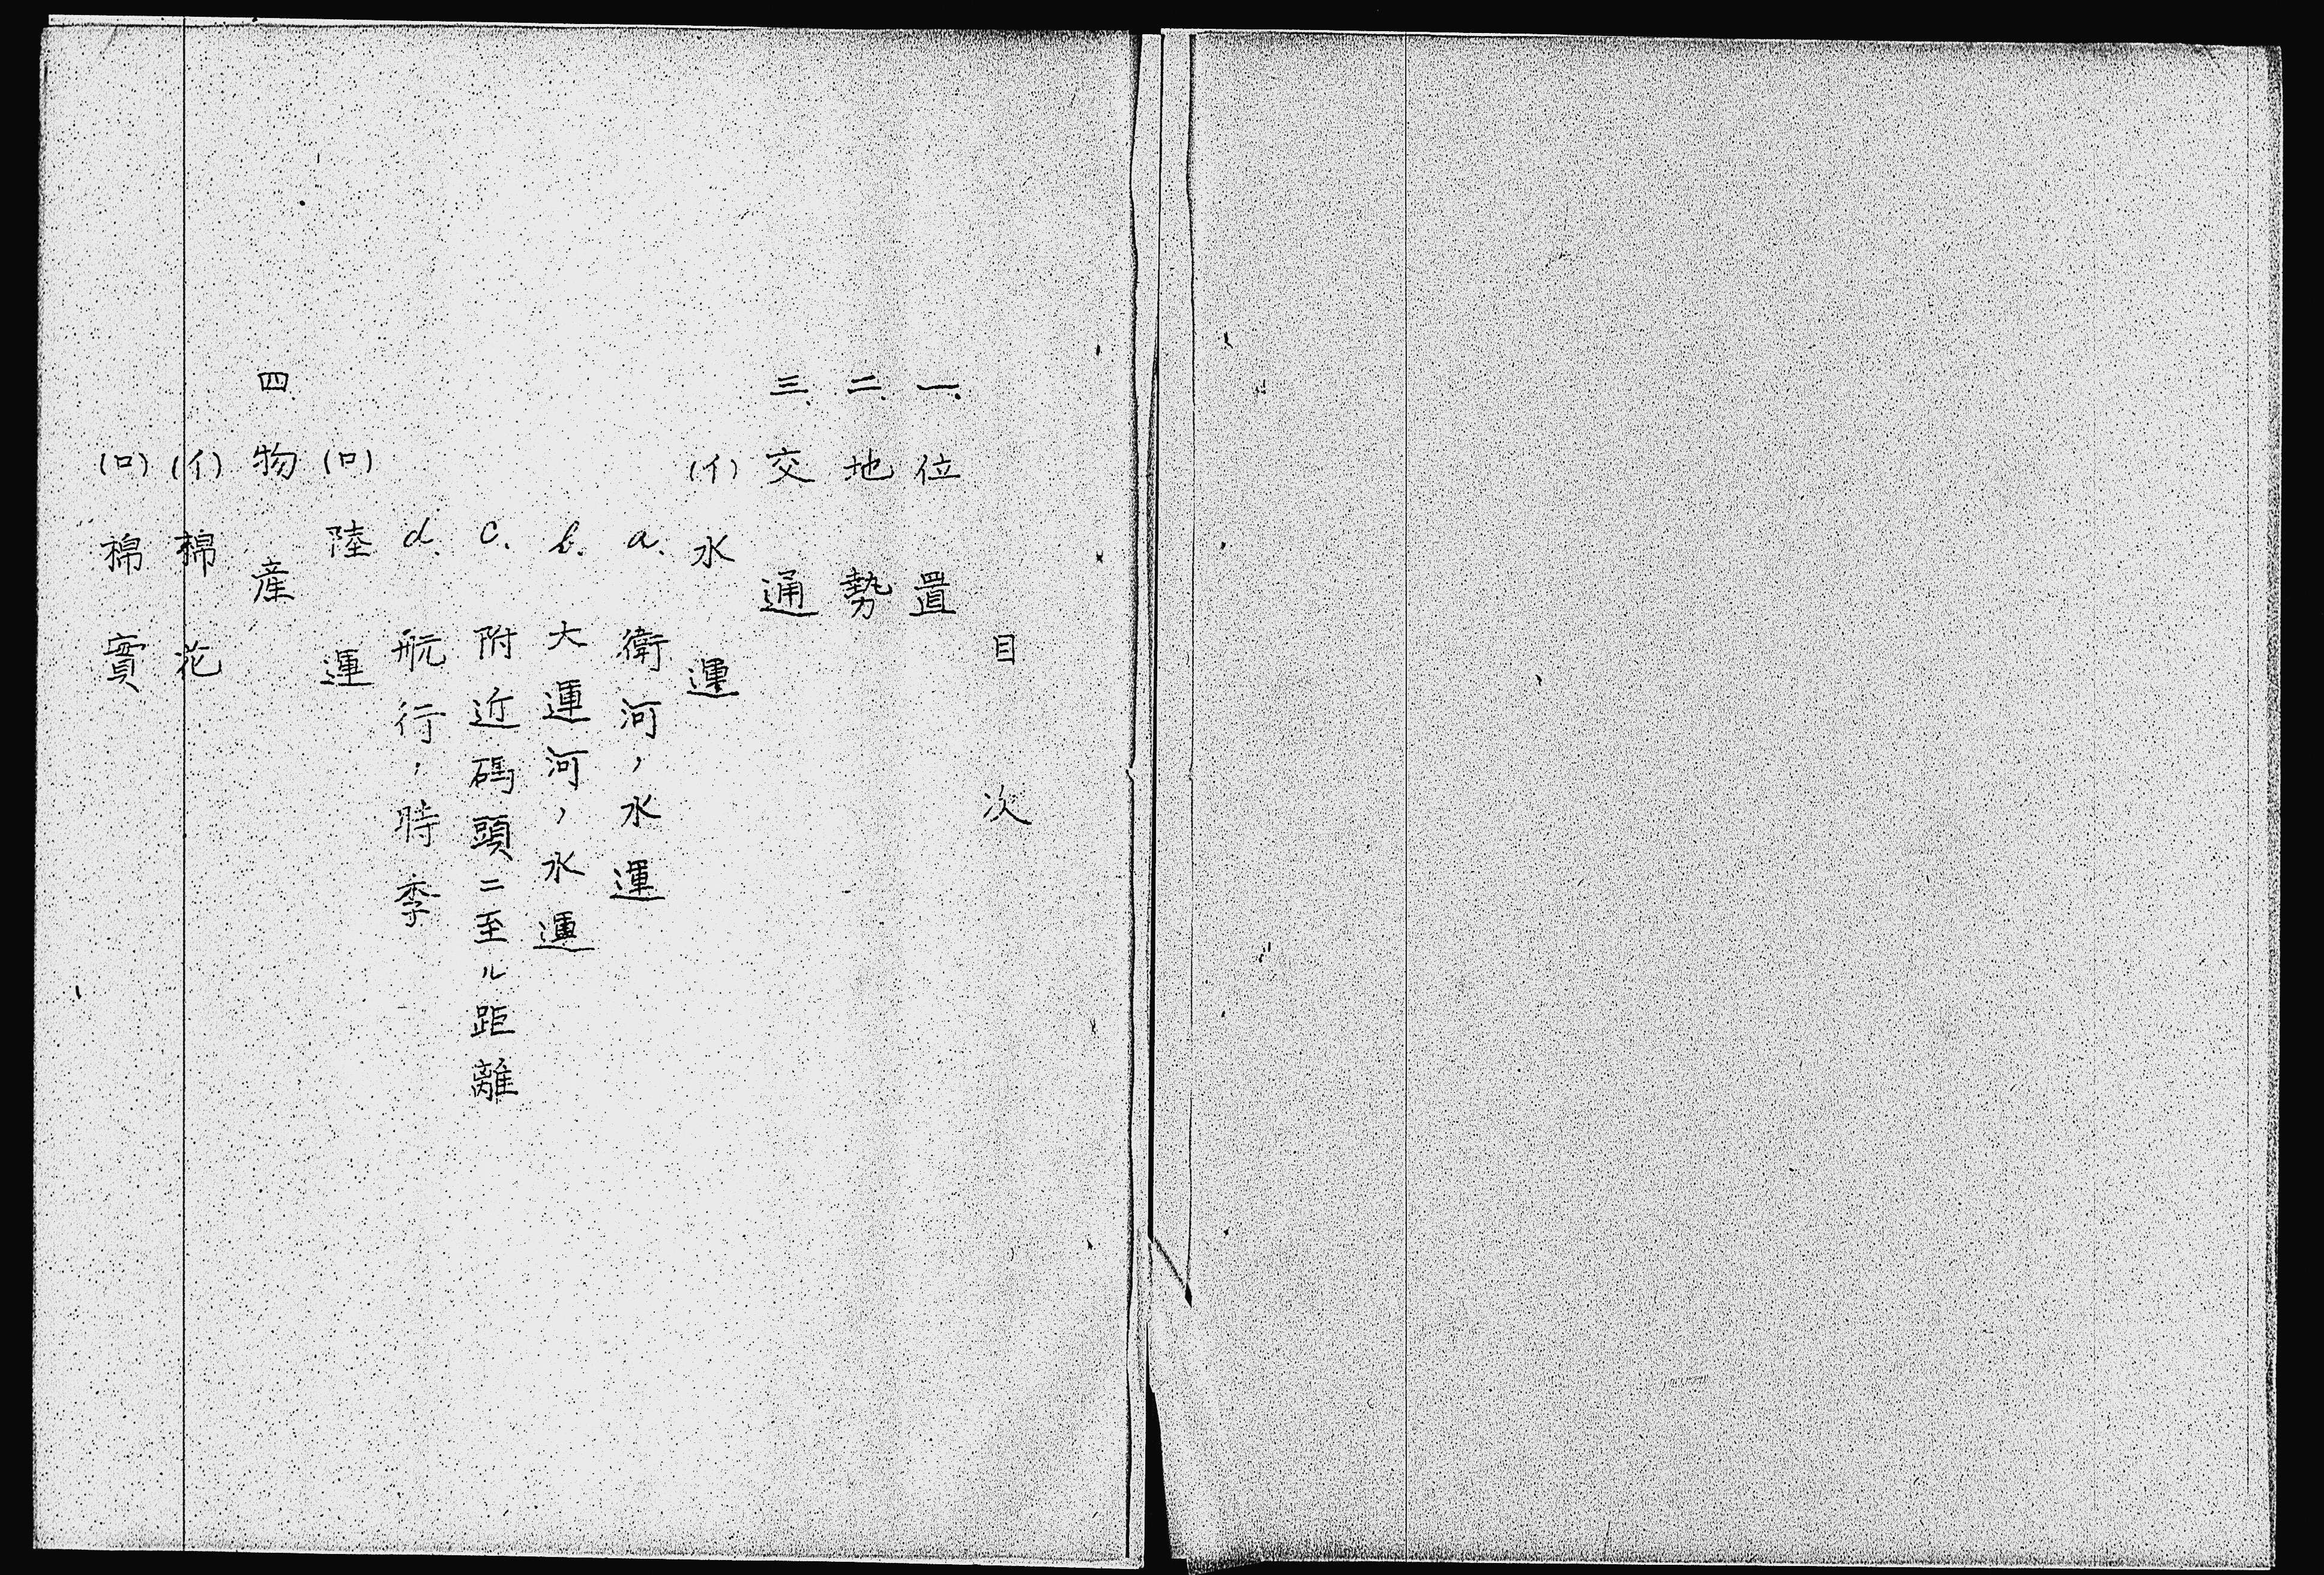 目次
一、位置
二、地勢
三、交通
(イ)水運
a. 衛河ノ水運
b. 大運河ノ水運
c. 附近碼頭ニ至ル距離
d. 航行ノ時季
(ロ)陸運
四、物産
(イ)棉花
(ロ)棉實